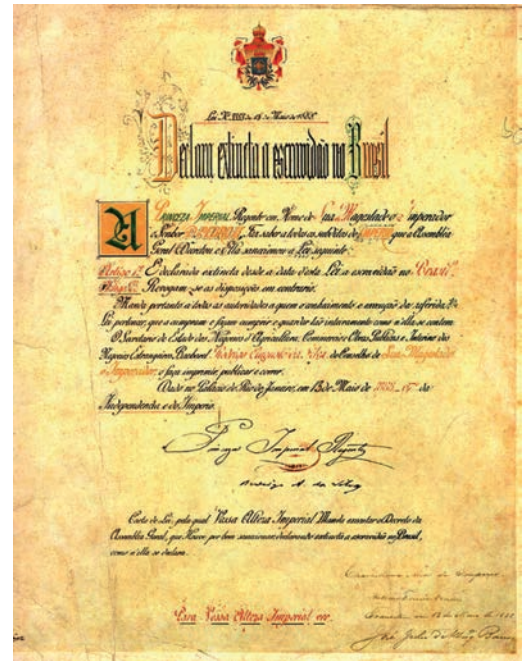 Lei Nº 3353 de 13 de Maio de 1888
Declara extincta a escravidão no Brasil
A PRINCEZA IMPERIAL Regente em Nome de Sua Magestade o Imperador
o Senhor D. PEDRO II, Faz saber a todos os subditos do IMPERIO que a Assembléa
Geral Decretou e Ella sanccionou a Lei seguinte:
Artigo 1º É declarada extincta desde a data d'esta Lei a escravidão no Brasil.
Revogam-se as disposições em contrario.
Manda portanto a todas as autoridades a quem o conhecimento e execução da referida
Lei pertencer, que a cumpram e façam cumprir e guardar tão inteiramente como n'ella se contem.
O Secretario de Estado dos Negocios d'Agricultura, Commercio e Obras Publicas e Interino dos
Negocios Estrangeiros, Bacharel Rodrigo Augusto da Silva do Conselho de Sua Magestade
o Imperador, o faça imprimir, publicar e correr.
Dado no Palacio do Rio de Janeiro, em 13 de Maio de 1888, 67º da
Independencia e do Imperio.
Princeza Imperial Regente
Rodrigo A. da Silva
Carta de Lei, pela qual Vossa Alteza Imperial Manda executar o Decreto da
Assembléa Geral, que Houve por bem sanccionar, declarando extincta a escravidão no Brasil,
como n'ella se declara.
Para Vossa Alteza Imperial ver.